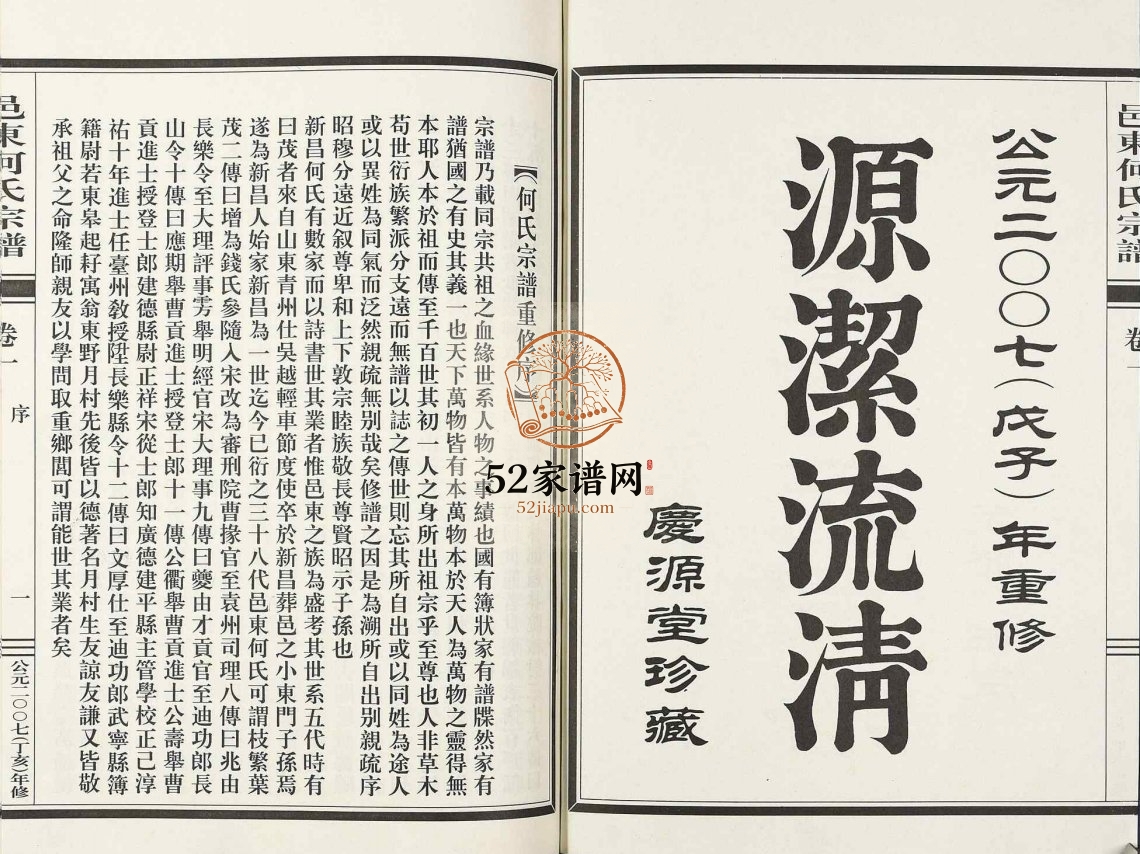 邑東何氏宗譜
公元二〇〇七(戊子)年重修
源潔流清
慶源堂珍藏
【何氏宗譜重修序】
宗譜乃載同宗共祖之血緣世系人物之事績也國有簿狀家有譜牒然家有
譜猶國之有史其義一也天下萬物皆有本萬物本於天人為萬物之靈得無
本耶人本於祖而傳至千百世其初一人之身所出祖宗乎至尊也人非草木
苟世衍族繁派分支遠而無譜以誌之傳世則忘其所自出或以同姓為途人
或以異姓為同氣而泛然親疏無別哉矣修譜之因是為溯所自出別親疏序
昭穆分遠近叙尊卑和上下敦宗睦族敬長尊賢昭示子孫也
新昌何氏有數家而以詩書世其業者惟邑東之族為盛考其世系五代時有
曰茂者來自山東青州仕吳越輕車節度使卒於新昌葬邑之小東門子孫焉
遂為新昌人始家新昌為一世迄今已衍之三十八代邑東何氏可謂枝繁葉
茂二傳曰增為錢氏參隨人宋改為審刑院曹掾官至袁州司理八傳曰兆由
長樂令至大理評事雱舉明經官宋大理事九傳曰夔由才貢官至迪功郎長
山令十傳曰應期舉曹貢進士授登士郎十一傳公衢舉曹貢進士公壽舉曹
貢進士授登士郎建德縣尉正祥宋從士郎知廣德建平縣主管學校正己淳
祐十年進士任臺州敎授陞長樂縣令十二傳曰文厚仕至迪功郎武寧縣簿
籍尉若東皋起耔寓翁東野月村先後皆以德著名月村生友諒友謙又皆敬
承祖父之命隆師親友以學問取重鄉閭可謂能世其業者矣
邑東何氏宗譜
卷一
序
一
公元二〇〇七(丁亥)年修
52家谱网
52jiapu.com